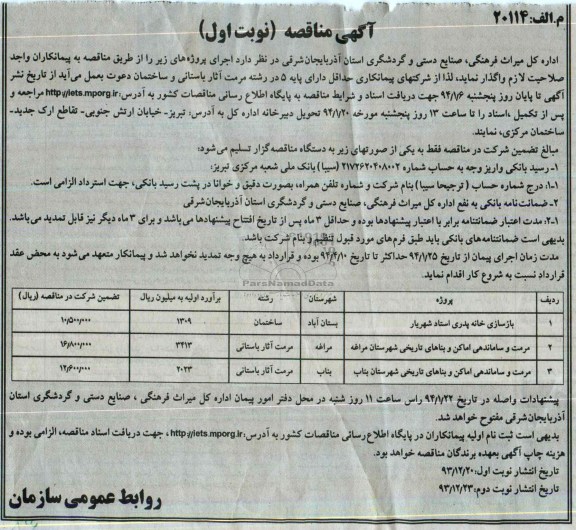 م.الف: ۲۰۱۱۴
آگهی مناقصه (نوبت اول)
اداره کل میراث فرهنگی، صنایع دستی و گردشگری استان آذربایجان‌شرقی در نظر دارد اجرای پروژه‌های زیر را از طریق مناقصه به پیمانکاران واجد
صلاحیت لازم واگذار نماید، لذا از شرکتهای پیمانکاری حداقل دارای پایه ۵ در رشته مرمت آثار باستانی و ساختمان دعوت بعمل می‌آید از تاریخ نشر
آگهی تا پایان روز پنجشنبه ۹۴/۱/۶ جهت دریافت اسناد و شرایط مناقصه به پایگاه اطلاع رسانی مناقصات کشور به آدرس: http://iets.mporg.ir مراجعه و
پس از تکمیل، اسناد را تا ساعت ۱۳ روز پنجشنبه مورخه ۹۴/۱/۲۰ تحویل دبیرخانه اداره کل به آدرس: تبریز- خیابان ارتش جنوبی- تقاطع ارک جدید-
ساختمان مرکزی، نمایند.
مبالغ تضمین شرکت در مناقصه فقط به یکی از صورتهای زیر به دستگاه مناقصه‌گزار تسلیم می‌شود:
۱- رسید بانکی واریز وجه به حساب شماره ۲۱۷۲۶۲۰۴۰۸۰۰۲ (سیبا) بانک ملی شعبه مرکزی تبریز:
۱-۱: درج شماره حساب ( ترجیحا سیبا ) بنام شرکت و شماره تلفن همراه، بصورت دقیق و خوانا در پشت رسید بانکی، جهت استرداد الزامی است.
۲- ضمانت‌نامه بانکی به نفع اداره کل میراث فرهنگی، صنایع دستی و گردشگری استان آذربایجان‌شرقی
۲-۱: مدت اعتبار ضمانتنامه برابر با اعتبار پیشنهادها بوده و حداقل ۳ ماه پس از تاریخ افتتاح پیشنهادها می‌باشد و برای ۳ ماه دیگر نیز قابل تمدید می‌باشد.
بدیهی است ضمانتنامه‌های بانکی باید طبق فرم‌های مورد قبول تنظیم و بنام شرکت باشد.
مدت زمان اجرای پیمان از تاریخ ۹۴/۱/۲۵ حداکثر تا تاریخ ۹۴/۴/۱۰ بوده و قرارداد به هیچ وجه تمدید نخواهد شد و پیمانکار متعهد می‌شود به محض عقد
قرارداد نسبت به شروع کار اقدام نماید.
ParsNamadData
ردیف پروژه شهرستان رشته برآورد اولیه به میلیون ریال تضمین شرکت در مناقصه (ریال)
۱ بازسازی خانه پدری استاد شهریار بستان آباد ساختمان ۱۳۰۹ ۱۰/۵۰۰/۰۰۰
۲ مرمت و ساماندهی اماکن و بناهای تاریخی شهرستان مراغه مراغه مرمت آثار باستانی ۳۴۱۳ ۱۶/۸۰۰/۰۰۰
۳ مرمت و ساماندهی اماکن و بناهای تاریخی شهرستان بناب بناب مرمت آثار باستانی ۲۰۲۳ ۱۲/۶۰۰/۰۰۰
پیشنهادات واصله در تاریخ ۹۴/۱/۲۲ راس ساعت ۱۱ روز شنبه در محل دفتر امور پیمان اداره کل میراث فرهنگی ، صنایع دستی و گردشگری استان
آذربایجان‌شرقی مفتوح خواهد شد.
بدیهی است ثبت نام اولیه پیمانکاران در پایگاه اطلاع رسانی مناقصات کشور به آدرس: http://iets.mporg.ir ، جهت دریافت اسناد مناقصه، الزامی بوده و
هزینه چاپ آگهی بعهده برندگان مناقصه خواهد بود.
تاریخ انتشار نوبت اول: ۹۳/۱۲/۲۰
تاریخ انتشار نوبت دوم: ۹۳/۱۲/۲۳
روابط عمومی سازمان